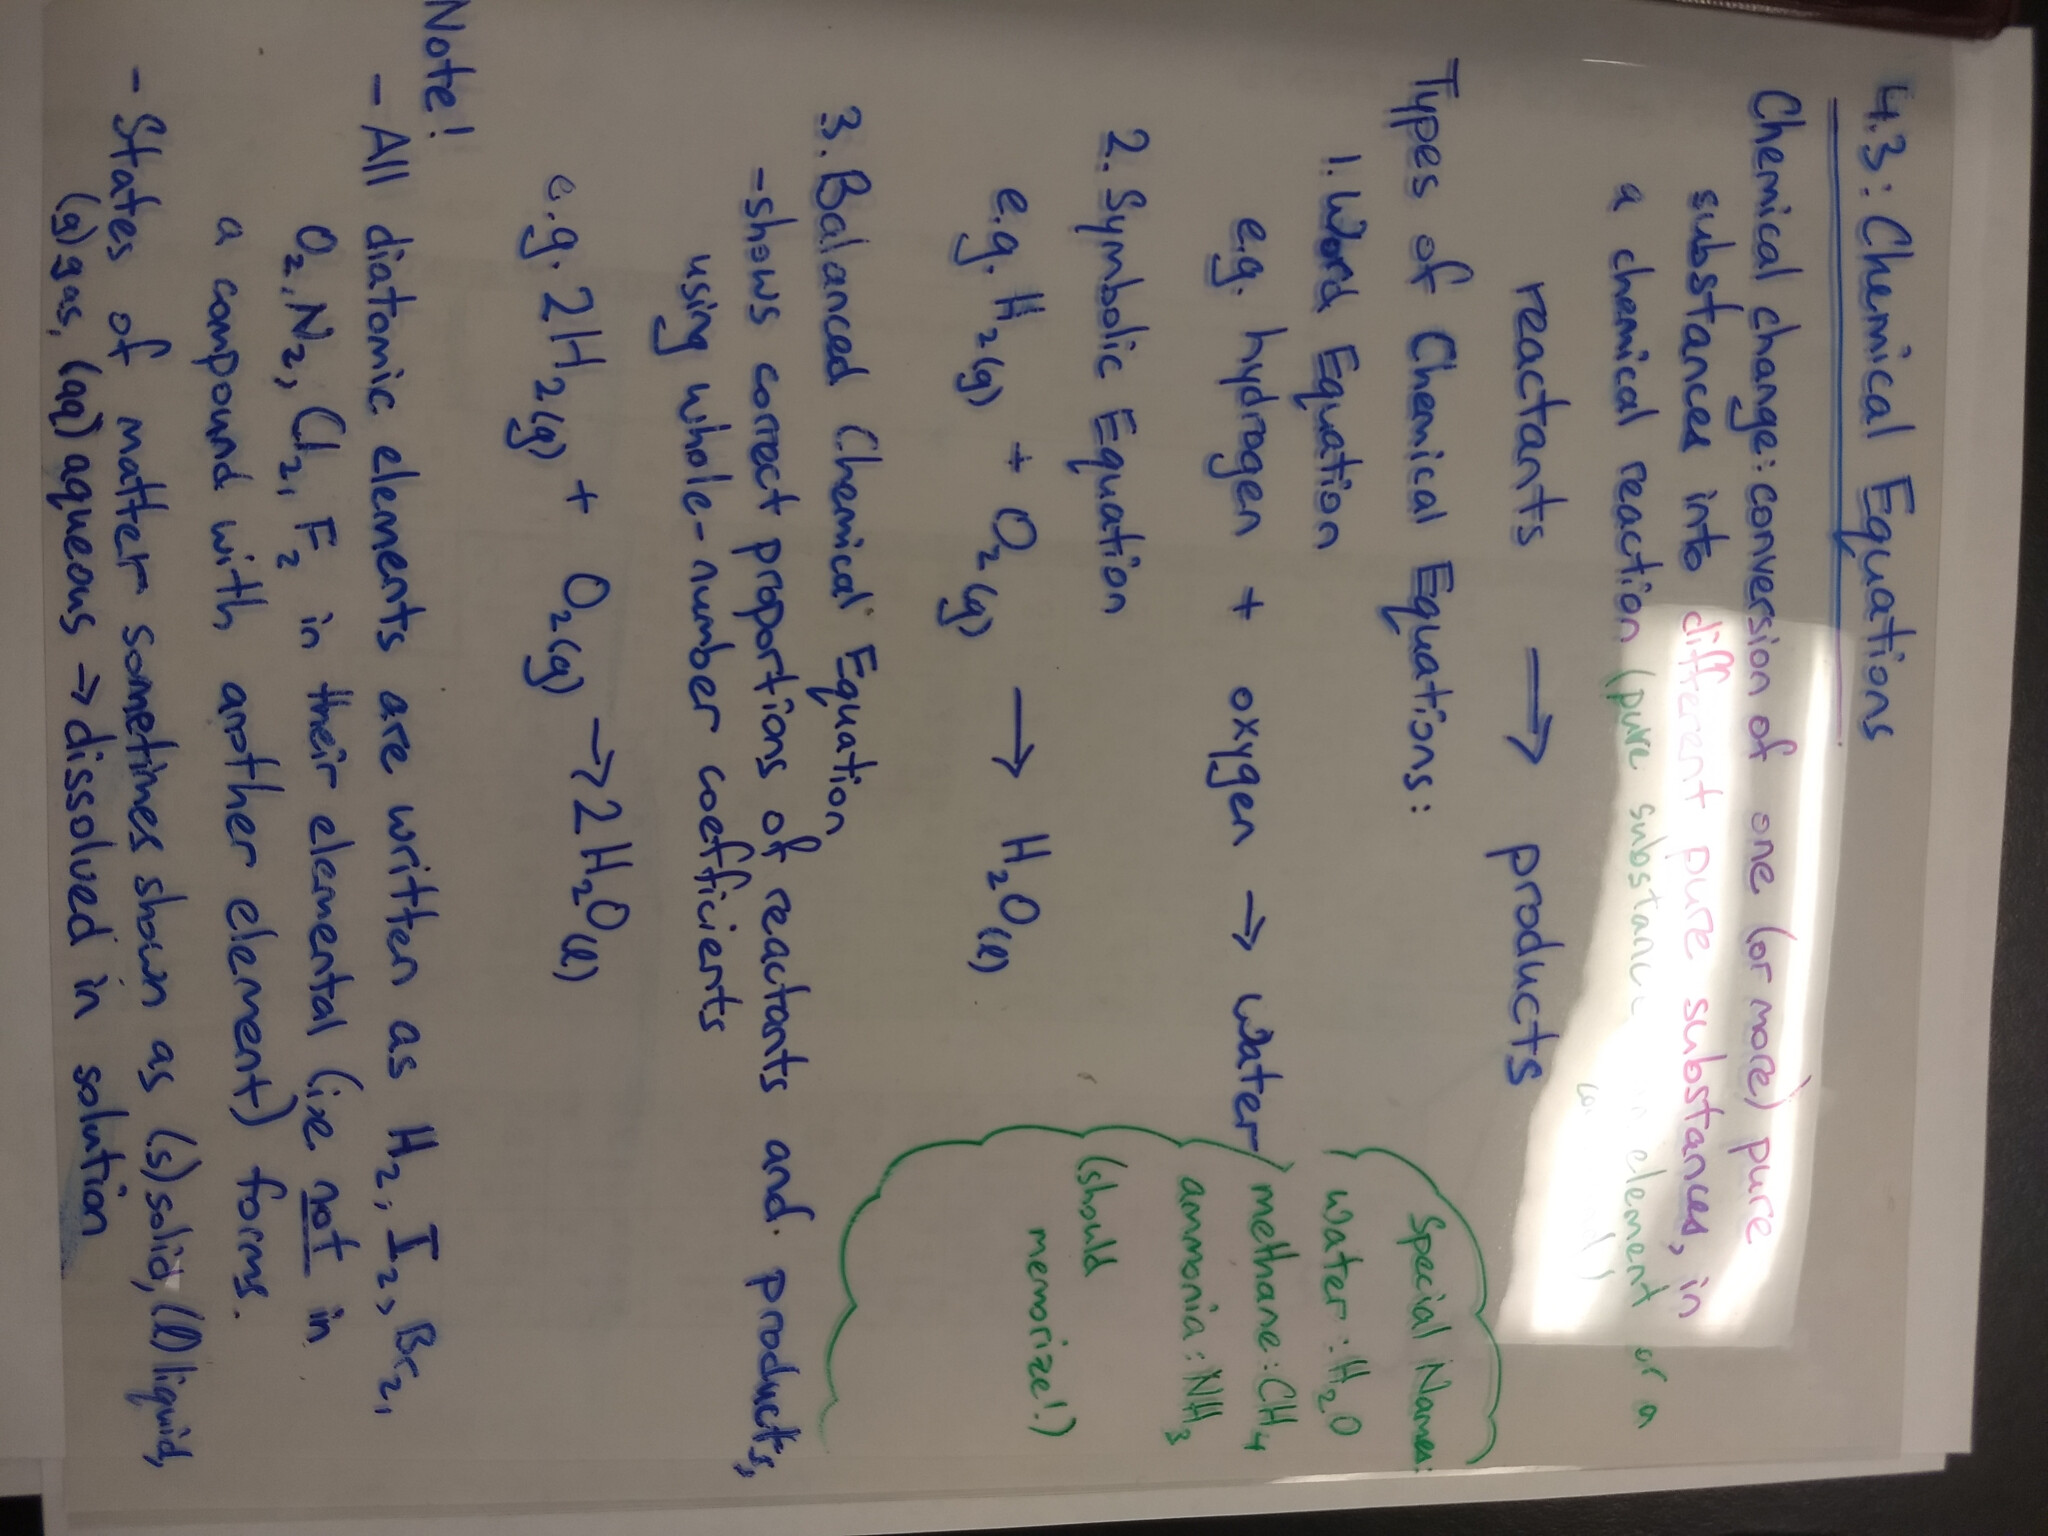 4.3: Chemical Equations
Chemical change: conversion of one (or more) pure
substances into different pure substances, in
a chemical reaction (pure substance an element or a
reactants → products
Types of Chemical Equations:
1. Word Equation
e.g. hydrogen + oxygen → water
2. Symbolic Equation
e.g. H₂(g) + O₂(g) → H₂O(l)
Special Names:
water: H₂O
methane: CH₄
ammonia: NH₃
(should
memorize!)
3. Balanced Chemical Equation
- shows correct proportions of reactants and products,
using whole-number coefficients
e.g. 2H₂(g) + O₂(g) → 2H₂O(l)
Note!
- All diatomic elements are written as H₂, I₂, Br₂,
O₂, N₂, Cl₂, F₂ in their elemental (i.e. not in
a compound with another element) forms.
- States of matter sometimes shown as (s) solid, (l) liquid,
(g) gas, (aq) aqueous → dissolved in solution